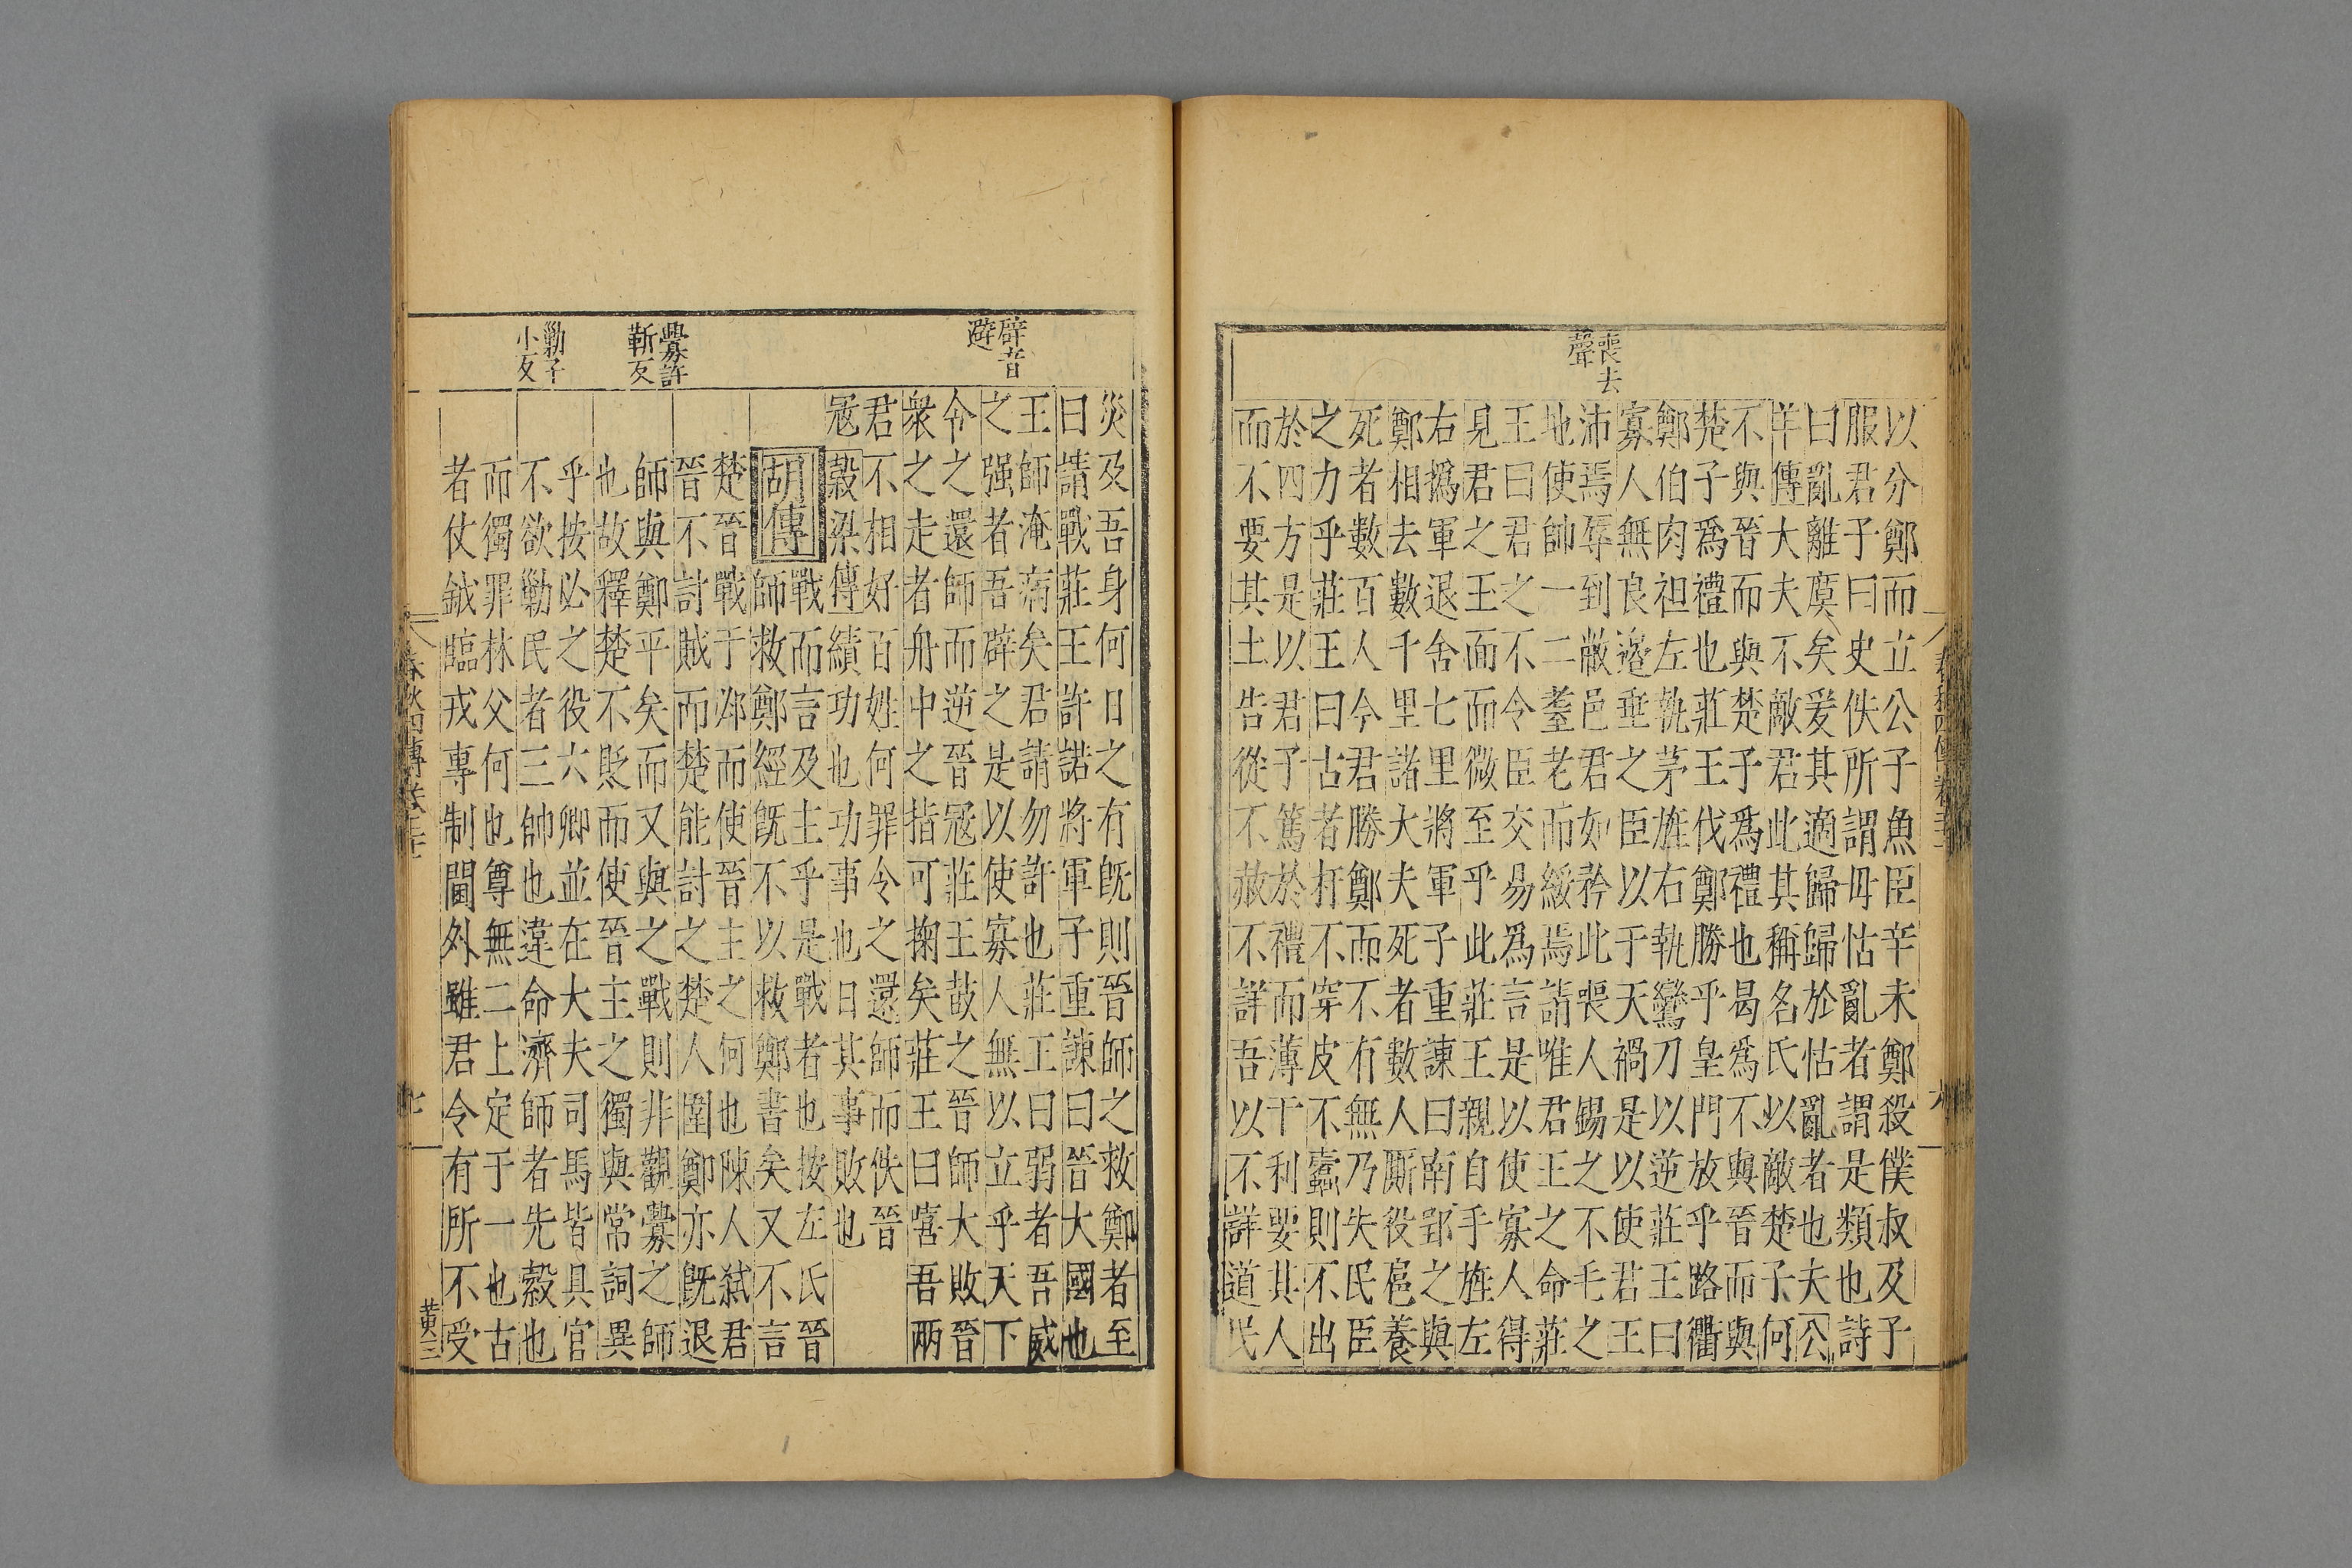 喪去
聲
以分鄭而立公子魚臣辛未鄭殺僕叔及子
服君子曰史佚所謂毋怙亂者謂是類也詩
曰亂離瘼矣爰其適歸歸於怙亂者也夫公
羊傳大夫不敵君此其稱名氏以敵楚子何
不與晉而與楚子爲禮也曷爲不與晉而與
楚子爲禮也莊王伐鄭勝乎皇門放乎路衢
鄭伯肉袒左執茅旌右執鸞刀以逆莊王曰
寡人無良邊垂之臣以于天禍是以使君王
沛焉辱到敝邑君如矜此喪人錫之不毛之
地使帥一二耋老而綏焉請唯君王之命莊
王曰君之不令臣交易爲言是以使寡人得
見君之王面而微至乎此莊王親自手旌左
右撝軍退舍七里將軍子重諫曰南郢之與
鄭相去數千里諸大夫死者數人廝役扈養
死者數百人今君勝鄭而不有無乃失民臣
之力乎莊王曰古者杅不穿皮不蠹則不出
於四方是以君子篤於禮而薄于利要其人
而不要其土告從不赦不詳吾以不詳道民
春秋四傳卷
辟音
避
釁許
靳反
勦子
小反
災及吾身何日之有旣則晉師之救鄭者至
曰請戰莊王許諾將軍子重諫曰晉大國也
王師淹病矣君請勿許也莊王曰弱者吾威
之强者吾辟之是以使寡人無以立乎天下
令之還師而逆晉寇莊王鼓之晉師大敗晉
衆之走者舟中之指可掬矣莊王曰嘻吾兩
君不相好百姓何罪令之還師而佚晉
寇穀梁傳績功也功事也曰其事敗也
胡傳戰而言及主乎是戰者也按左氏晉
師救鄭經旣不以救鄭書矣又不言
楚晉戰于邲而使晉主之何也陳人弑君
晉不討賊而楚能討之楚人圍鄭亦旣退
師與鄭平矣而又與之戰則非觀釁之師
也故釋楚不貶而使晉主之獨與常詞異
乎按邲之役六卿並在大夫司馬皆具官
不欲勦民者三帥也違命濟師者先縠也
而獨罪林父何也尊無二上定于一也古
者仗鉞臨戎專制閫外雖君令有所不受
春秋四傳卷
黃三